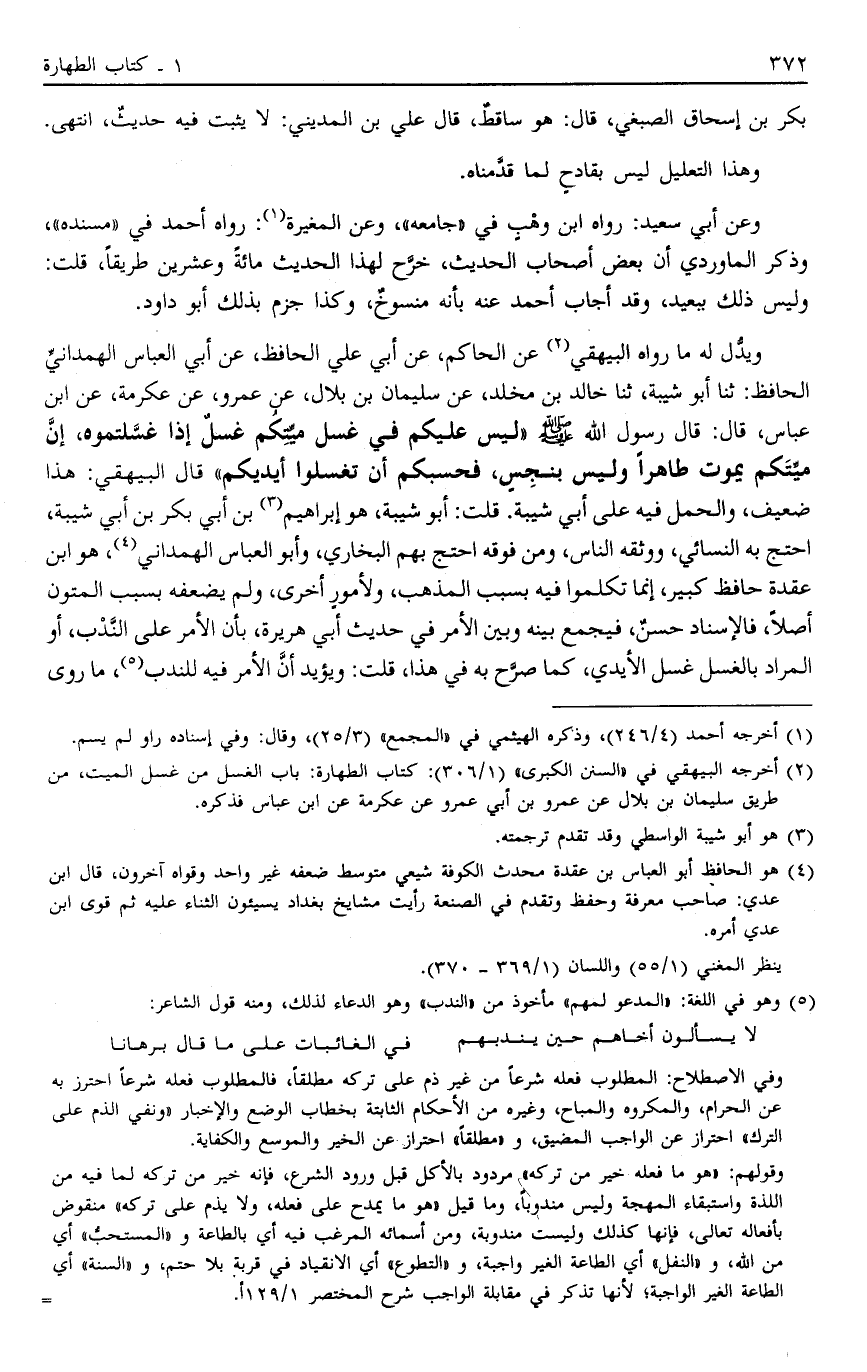 ٣٧٢
١ ـ كتاب الطهارة
بكر بن إسحاق الصبغي، قال: هو ساقطٌ، قال علي بن المديني: لا يثبت فيه حديثٌ، انتهى.
وهذا التعليل ليس بقادحٍ لما قدَّمناه.
وعن أبي سعيد: رواه ابن وهْبٍ في «جامعه»، وعن المغيرة(١): رواه أحمد في «مسنده»،
وذكر الماوردي أن بعض أصحاب الحديث، خرَّج لهذا الحديث مائةً وعشرين طريقاً، قلت:
وليس ذلك ببعيد، وقد أجاب أحمد عنه بأنه منسوخٌ، وكذا جزم بذلك أبو داود.
ويدُّل له ما رواه البيهقي(٢) عن الحاكم، عن أبي علي الحافظ، عن أبي العباس الهمدانيِّ
الحافظ: ثنا أبو شيبة، ثنا خالد بن مخلد، عن سليمان بن بلال، عن عمرو، عن عكرمة، عن ابن
عباس، قال: قال رسول الله ﷺ «ليس عليكم في غسل ميِّتِكُم غسلٌ إذا غسَّلتموه، إنَّ
ميِّتَكم يموت طاهراً وليس بنجِسٍ، فحسبكم أن تغسلوا أيديكم» قال البيهقي: هذا
ضعيف، والحمل فيه على أبي شيبة. قلت: أبو شيبة، هو إبراهيم(٣) بن أبي بكر بن أبي شيبة،
احتج به النسائي، ووثقه الناس، ومن فوقه احتج بهم البخاري، وأبو العباس الهمداني(٤)، هو ابن
عقدة حافظ كبير، إنما تكلموا فيه بسبب المذهب، ولأمورٍ أخرى، ولم يضعفه بسبب المتون
أصلاً، فالإسناد حسنٌ، فيجمع بينه وبين الأمر في حديث أبي هريرة، بأن الأمر على النَّدْب، أو
المراد بالغسل غسل الأيدي، كما صرَّح به في هذا، قلت: ويؤيد أنَّ الأمر فيه للندب(٥)، ما روى
(١) أخرجه أحمد (٢٤٦/٤)، وذكره الهيثمي في «المجمع» (٢٥/٣)، وقال: وفي إسناده راو لم يسم.
(٢) أخرجه البيهقي في «السنن الكبرى» (٣٠٦/١): كتاب الطهارة: باب الغسل من غسل الميت، من
طريق سليمان بن بلال عن عمرو بن أبي عمرو عن عكرمة عن ابن عباس فذكره.
(٣) هو أبو شيبة الواسطي وقد تقدم ترجمته.
(٤) هو الحافظ أبو العباس بن عقدة محدث الكوفة شيعي متوسط ضعفه غير واحد وقواه آخرون، قال ابن
عدي: صاحب معرفة وحفظ وتقدم في الصنعة رأيت مشايخ بغداد يسيئون الثناء عليه ثم قوى ابن
عدي أمره.
ينظر المغني (٥٥/١) واللسان (٣٦٩/١ ـ ٣٧٠).
(٥) وهو في اللغة: «المدعو لمهم» مأخوذ من «الندب» وهو الدعاء لذلك، ومنه قول الشاعر:
لا يـسـألـون أخـاهـم حـين يـنـدبـهـم    فـي الـغـائـبـات عـلـى ما قـال بـرهـانـا
وفي الاصطلاح: المطلوب فعله شرعاً من غير ذم على تركه مطلقاً، فالمطلوب فعله شرعاً احترز به
عن الحرام، والمكروه والمباح، وغيره من الأحكام الثابتة بخطاب الوضع والإخبار «ونفي الذم على
الترك» احتراز عن الواجب المضيق، و «مطلقاً» احتراز عن الخير والموسع والكفاية.
وقولهم: «هو ما فعله خير من تركه» مردود بالأكل قبل ورود الشرع، فإنه خير من تركه لما فيه من
اللذة واستبقاء المهجة وليس مندوباً، وما قيل «هو ما يمدح على فعله، ولا يذم على تركه» منقوض
بأفعاله تعالى، فإنها كذلك وليست مندوبة، ومن أسمائه المرغب فيه أي بالطاعة و «المستحبُّ» أي
من الله، و «النفل» أي الطاعة الغير واجبة، و «التطوع» أي الانقياد في قربة بلا حتم، و «السنة» أي
الطاعة الغير الواجبة؛ لأنها تذكر في مقابلة الواجب شرح المختصر ١٢٩/١أ. =